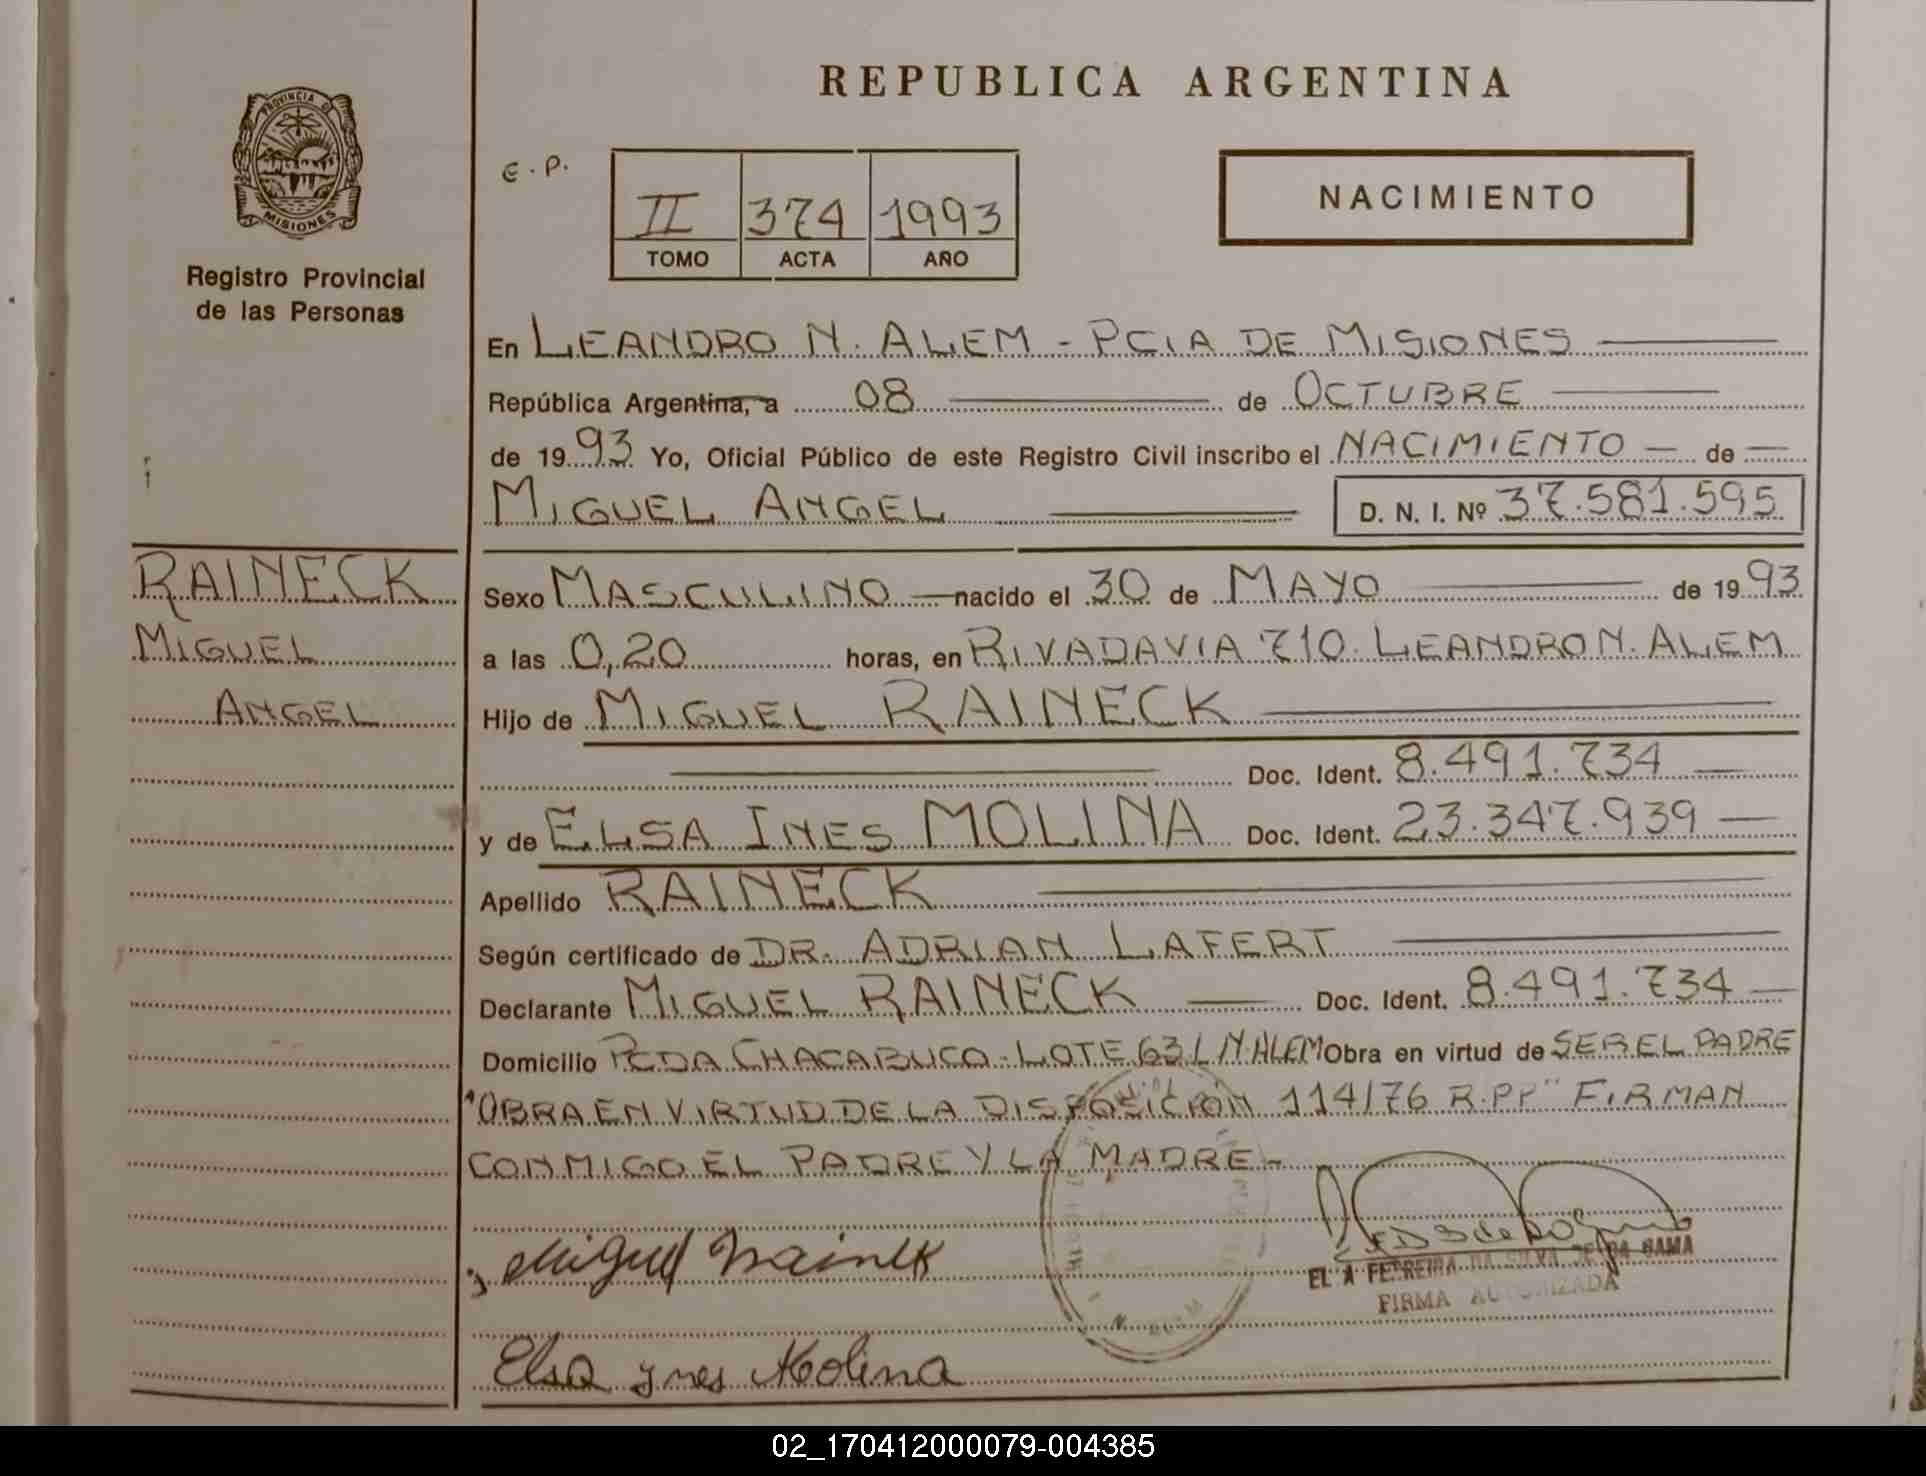 REPUBLICA ARGENTINA
PROVINCIA DE
MISIONES
Registro Provincial
de las Personas
E.P.
II 374 1993
TOMO ACTA AÑO
NACIMIENTO
En LEANDRO N. ALEM - PCIA DE MISIONES
República Argentina, a 08 de OCTUBRE
de 1993 Yo, Oficial Público de este Registro Civil inscribo el NACIMIENTO — de —
MIGUEL ANGEL D. N. I. Nº 37.581.595
RAINECK
MIGUEL
ANGEL
Sexo MASCULINO — nacido el 30 de MAYO de 1993
a las 0,20 horas, en RIVADAVIA 710. LEANDRO N. ALEM
Hijo de MIGUEL RAINECK
Doc. Ident. 8.491.734 —
y de ELSA INES MOLINA Doc. Ident. 23.347.939 —
Apellido RAINECK
Según certificado de DR. ADRIAN LAFERT
Declarante MIGUEL RAINECK — Doc. Ident. 8.491.734 —
Domicilio PCDA CHACABUCO - LOTE 63 L N. ALEM Obra en virtud de SER EL PADRE
"OBRA EN VIRTUD DE LA DISPOSICION 114/76 R.PP" FIRMAN
CONMIGO EL PADRE Y LA MADRE -
Miguel Raineck
FERREIRA DA SILVA DE DA GAMA
FIRMA AUTORIZADA
Elsa Ynes Molina
02_170412000079-004385